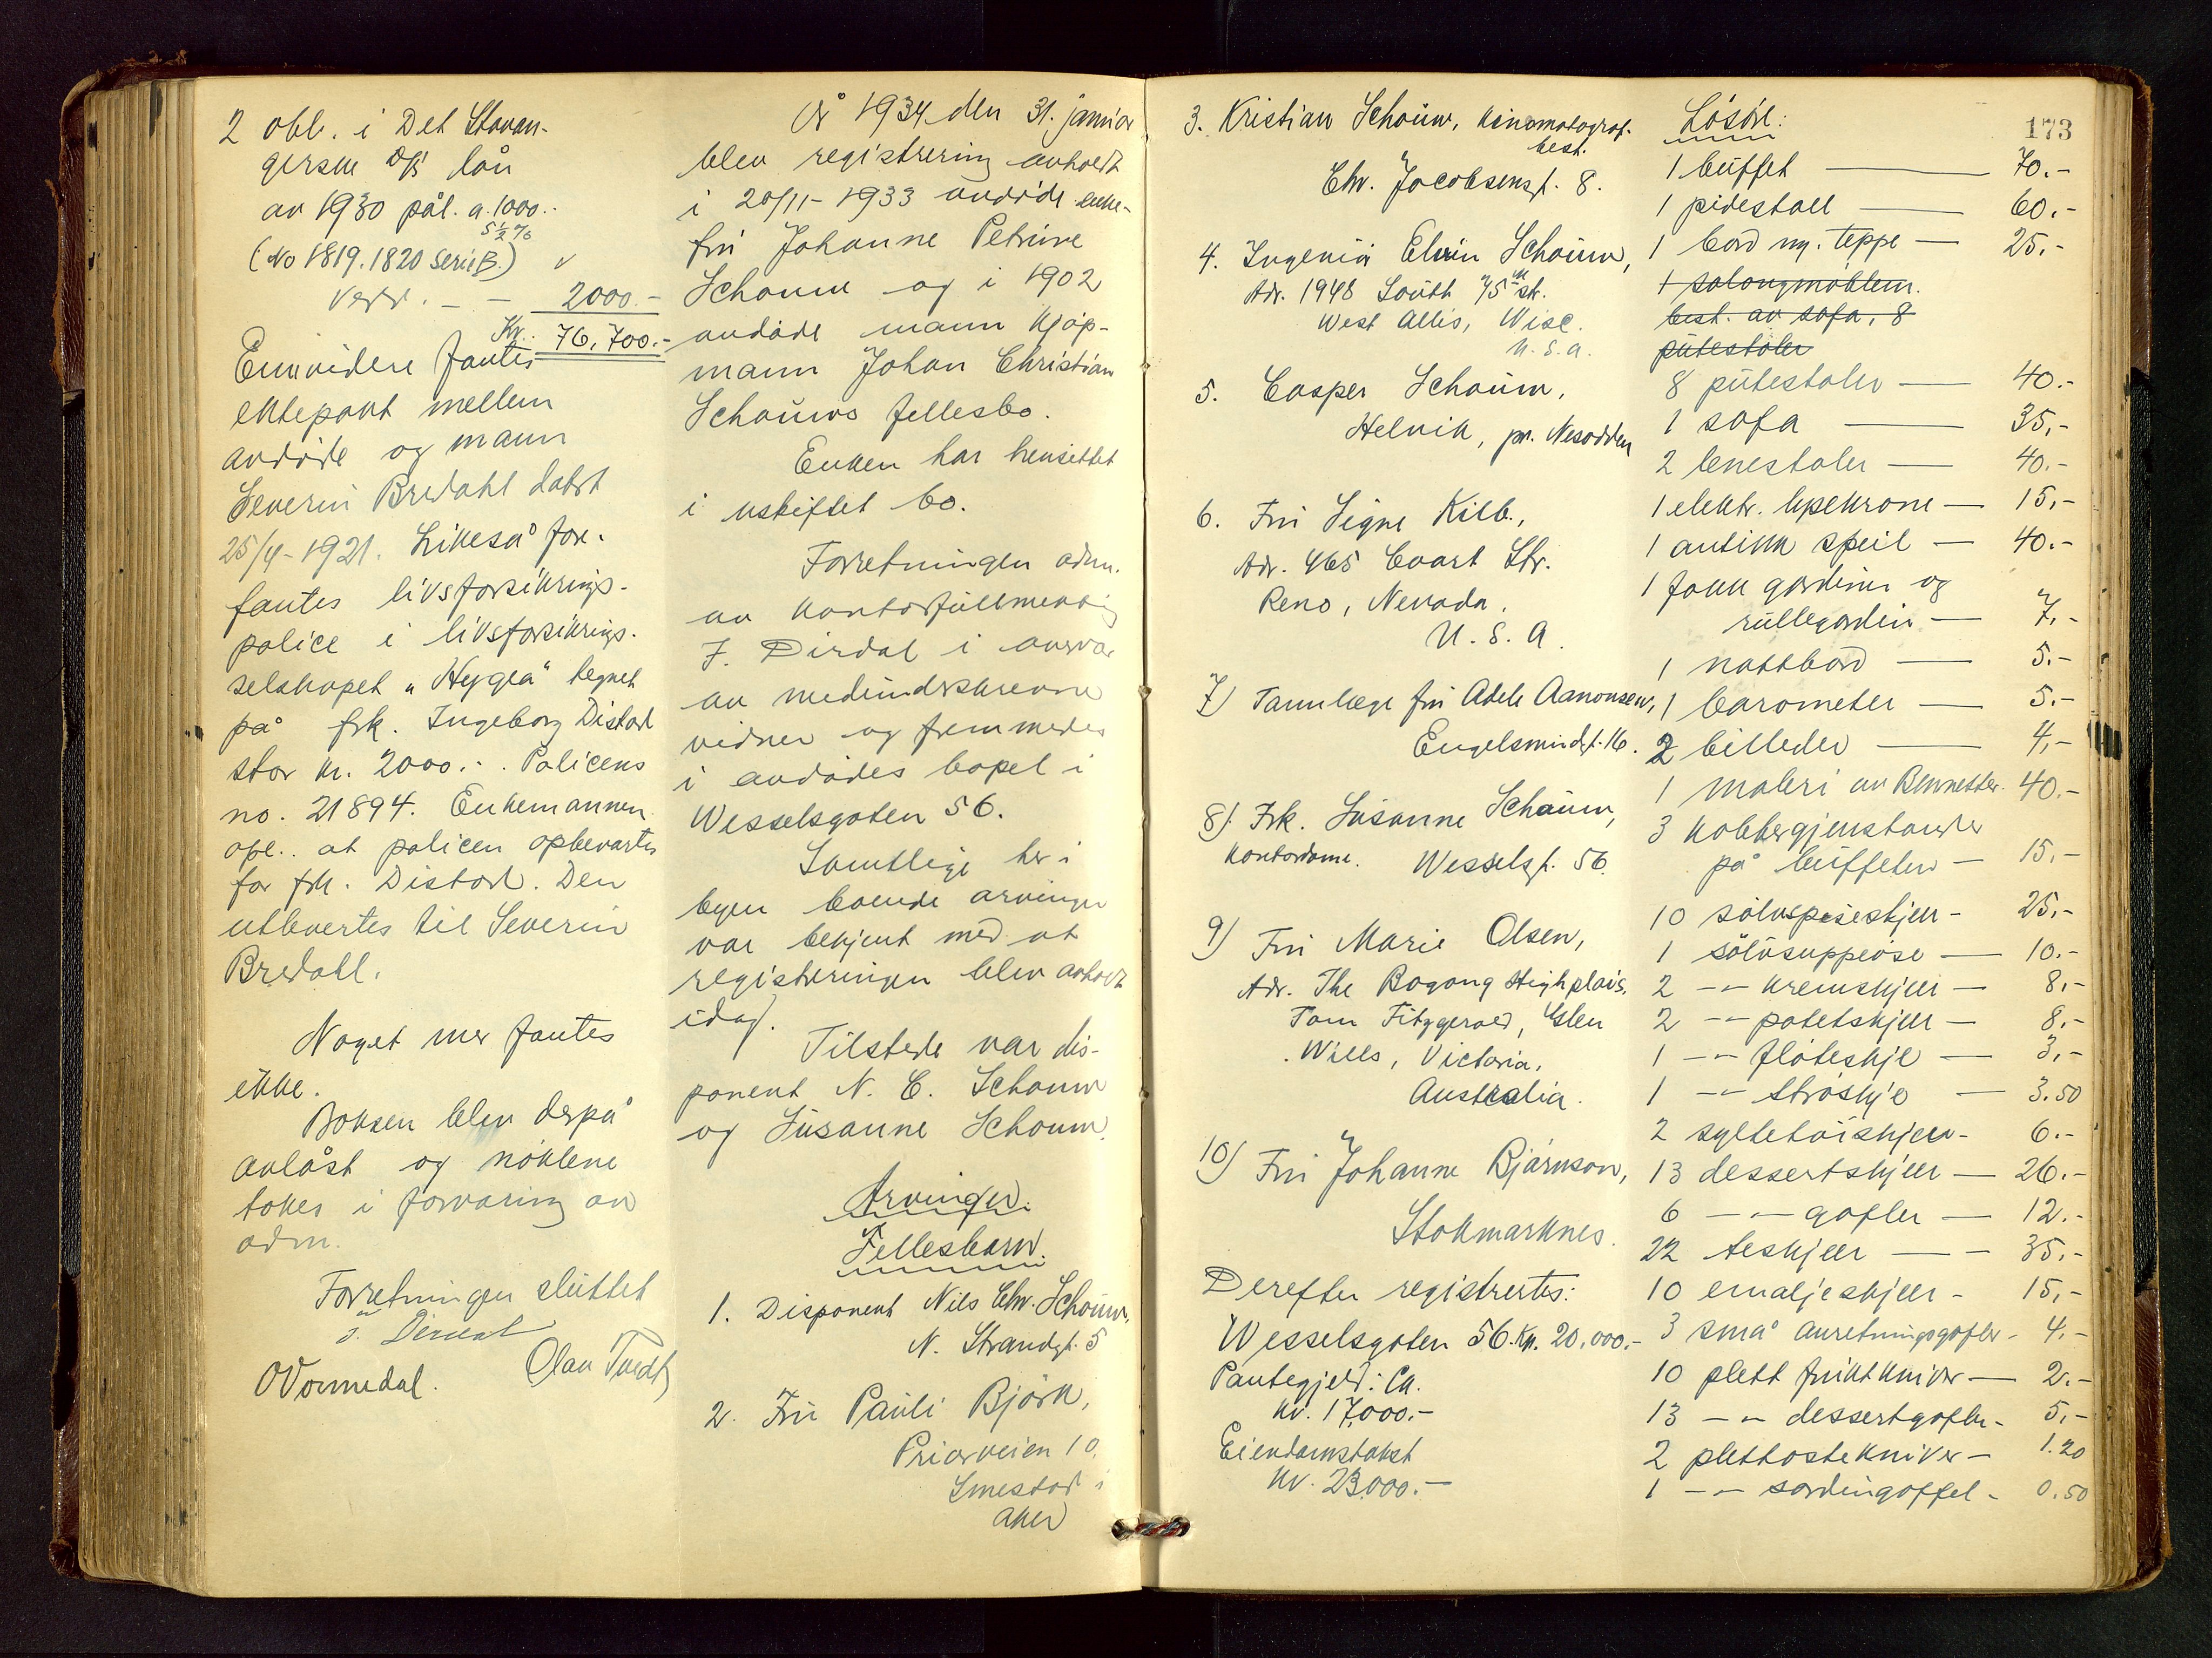 2 obl. i Det Stavan-
gerske D/S lån
av 1930 pål. a. 1000.-
5½%
(No 1819. 1820 Serie B.) v
Verd. - - 2000.-
Kr.: 76,700.-
Ennvidere fantes
ektepakt mellem
avdöde og mann
Severin Bredahl datert
25/4-1921. Likeså fore-
fantes livsforsikrings-
police i livsforsikrings-
selskapet "Hygea" tegnet
på frk. Ingeborg Distad
stor kr. 2000.-. Policens
no. 21894. Enkemannen
opl. at policen opbevartes
for frk. Distad. Den
utlevertes til Severin
Bredahl.
Noget mer fantes
ikke.
Boksen blev derpå
avlåst og nöklene
tokes i forvaring av
adm.
Forretningen sluttet
J. Dirdal
Olav Tvedt
O Vormedal.
År 1934 den 31. januar
blev registrering avholdt
i 20/11-1933 avdöde enke-
fru Johanne Petrine
Schouw og i 1902
avdöde mann kjöp-
mann Johan Christian
Schouws fellesbo.
Enken har hensittet
i uskiftet bo.
Forretningen adm.
av kontorfullmektig
J. Dirdal i overvær
av medunderskrevne
vidner og fremmedes
i avdödes bopel i
Wesselsgaten 56.
Samtlige her i
byen boende arvinger
var bekjent med at
registreringen blev avholdt
idag.
Tilstede var dis-
ponent N. C. Schouw
og Susanne Schouw.
Arvinger.
Fellesbarn.
1. Disponent Nils Chr. Schouw,
N. Strandgt. 5
2. Fru Pauli Björk,
Priorveien 10.
Smestad i
Aker
173
3. Kristian Schouw, kinomatograf-
best.
Chr. Jacobsensgt. 8.
4. Ingeniör Elvin Schouw,
Adr. 1948 South 75th str.
West Allis, Wisc.
U.S.A.
5. Casper Schouw,
Helvik, pr. Nesodden
6. Fru Signe Kilb.,
Adr. 465 Court Str.
Reno, Nevada.
U.S.A.
7) Tannlæge fru Adele Aanonsen,
Engelsmindgt. 16.
8) Frk. Susanne Schouw,
kontordame. Wesselsgt. 56.
9) Fru Marie Olsen,
Adr. The Bogong High plains.
Tom Fitzgerald, Glen
Wills, Victoria,
Australia.
10) Fru Johanne Bjarnson,
Stokmarknes.
Derefter registrertes:
Wesselsgaten 56. Kr. 20.000.-
Pantegjeld: Ca.
kr. 17,000.-
Eiendomstakst
kr. 23.000.-
Lösöre:
1 buffet — 70.-
1 pidestall — 60.-
1 bord m. teppe — 25.-
1 salongmöblem.
best. av sofa, 8
putestoler
8 putestoler — 40.-
1 sofa — 35,-
2 lenestoler — 40.-
1 elektr. lysekrone — 15,-
1 antikk speil — 40.-
1 fakk gardiner og
rullegardin — 7.-
1 nattbord — 5.-
1 barometer — 5.-
2 billeder — 4,-
1 maleri av Bennetter. 40.-
3 kobbergjenstander
på buffeten — 15.-
10 sölvspiseskjeer - 25.-
1 sölvsuppeöse — 10.-
2 -"- kremskjeer — 8,-
2 -"- potetskjeer — 8.-
1 -"- flöteskje — 3,-
1 -"- ströskje — 3.50
2 syltetöiskjeer - 6.-
13 dessertskjeer — 26.-
6 -"- gafler — 12.-
22 teskjeer — 35,-
10 emaljeskjeer - 15,-
3 små anretningsgafler - 4.-
10 plett fruktkniver — 2.-
13 -"- dessertgafler - 5,-
2 plettostekniver — 1.20
1 -"- sardingaffel - 0.50